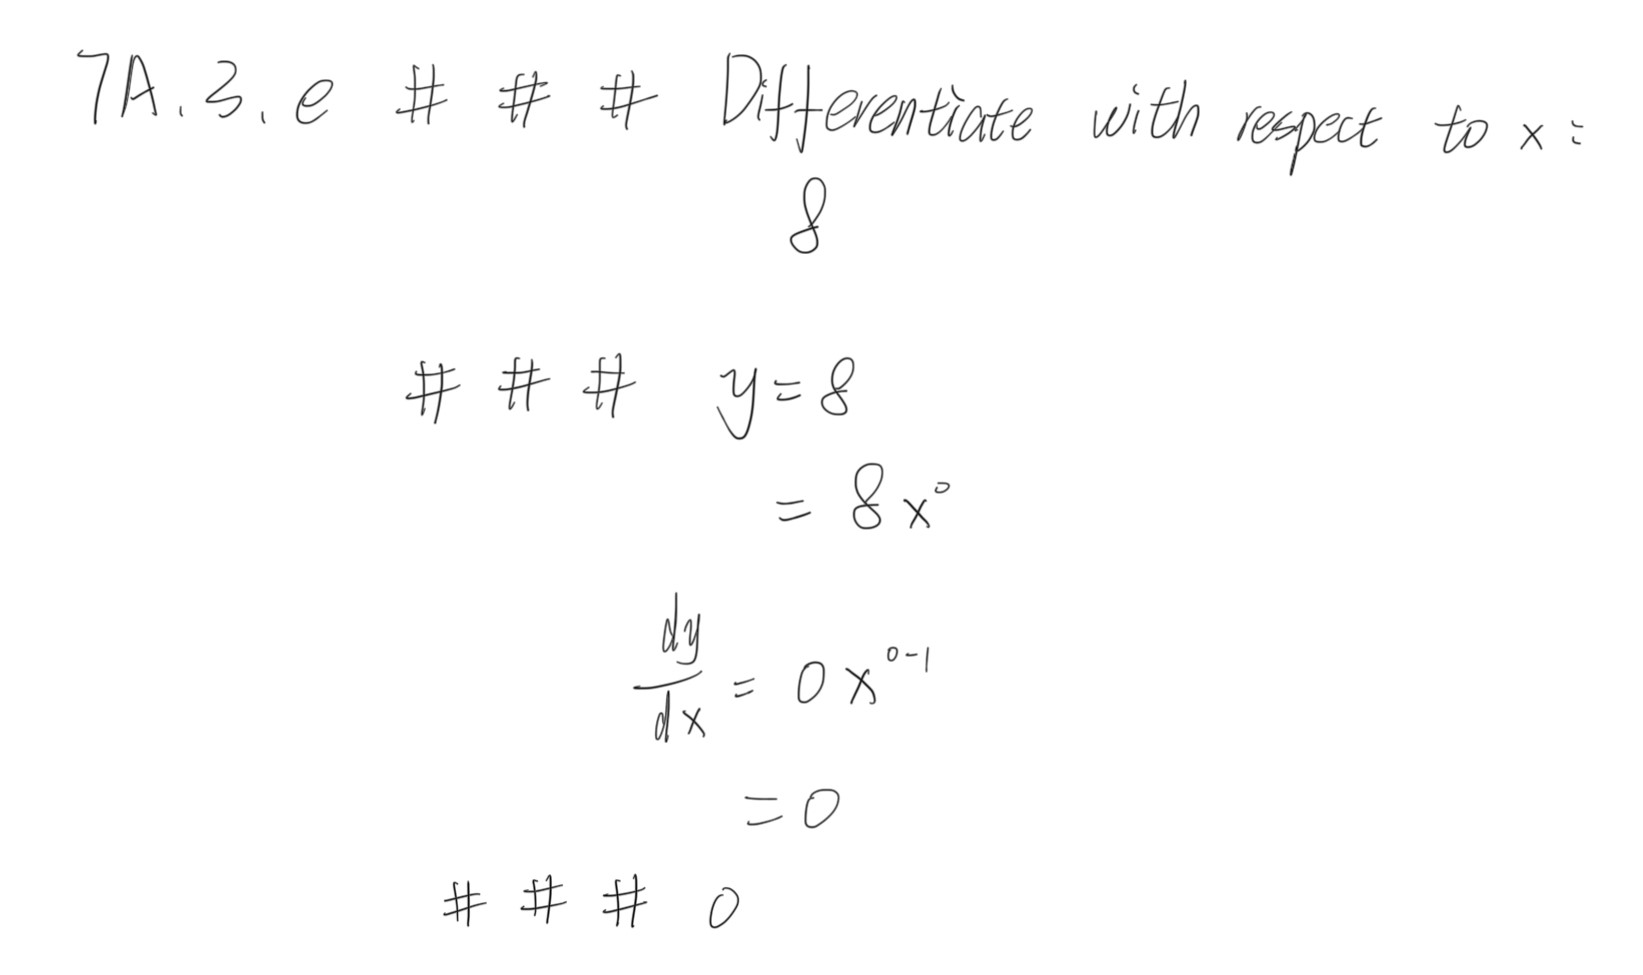 7A.3.e # # # Differentiate with respect to x:
8
# # # y=8
= 8x⁰
dy/dx = 0x⁰⁻¹
=0
# # # 0